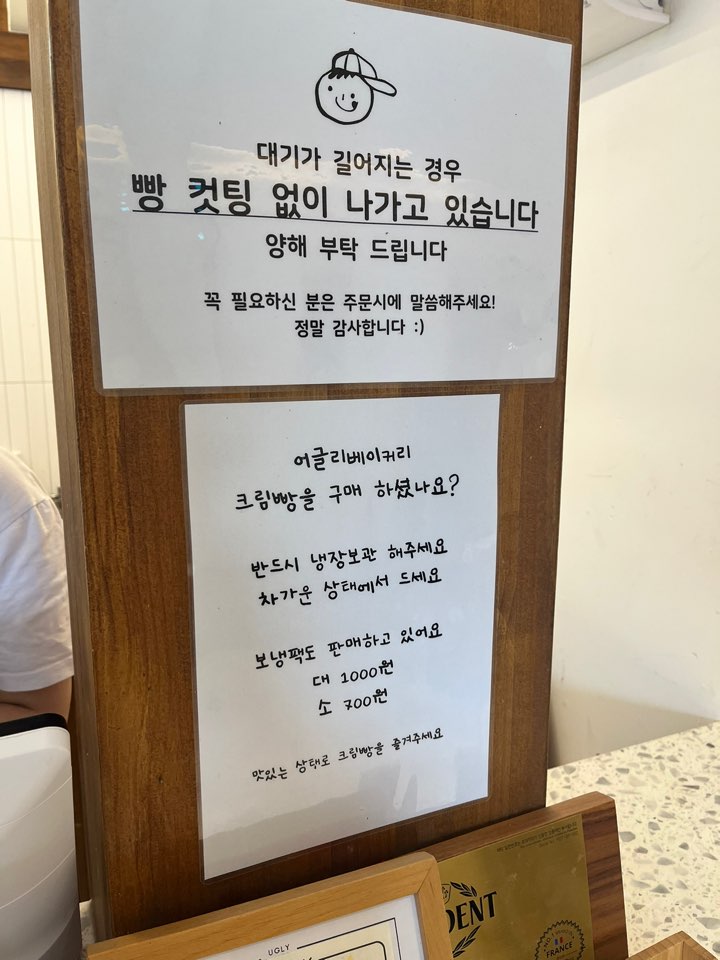 대기가 길어지는 경우
빵 컷팅 없이 나가고 있습니다
양해 부탁 드립니다
꼭 필요하신 분은 주문시에 말씀해주세요!
정말 감사합니다 :)
어글리베이커리
크림빵을 구매 하셨나요?
반드시 냉장보관 해주세요
차가운 상태에서 드세요
보냉팩도 판매하고 있어요
대 1000원
소 700원
맛있는 상태로 크림빵을 즐겨주세요
UGLY
DENT
FRANCE